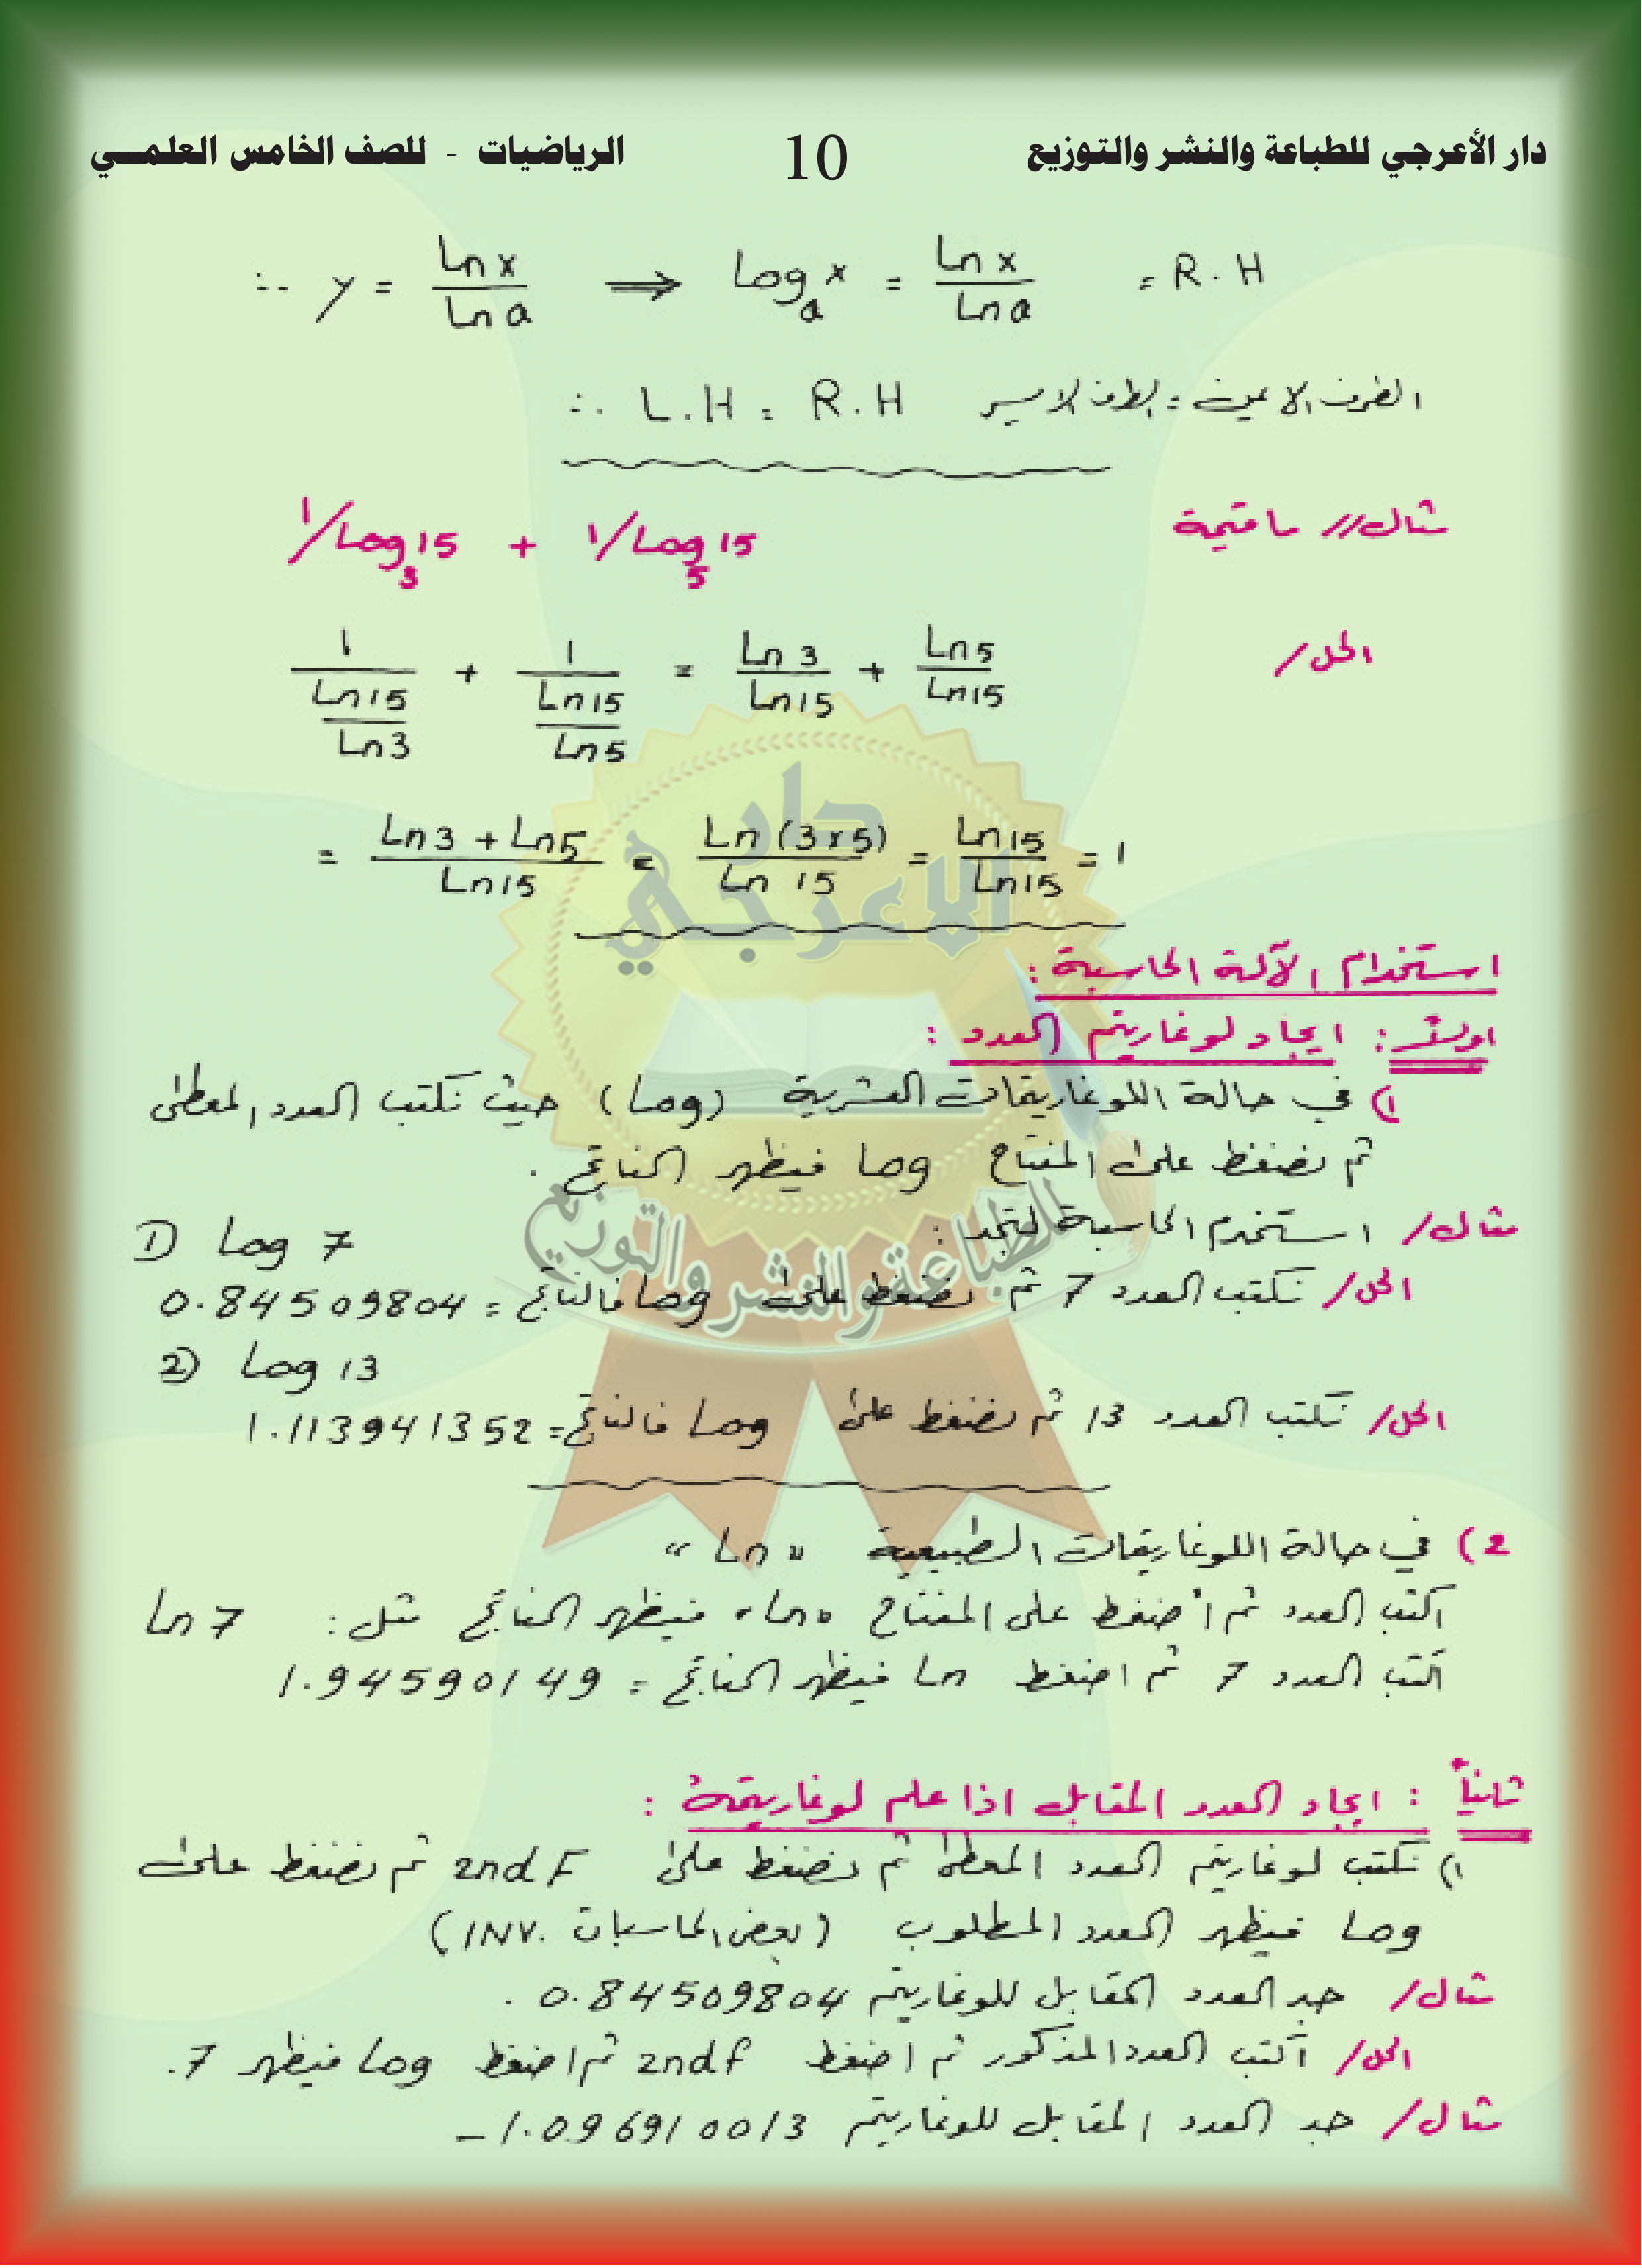 دار الأعرجي للطباعة والنشر والتوزيع 10 الرياضيات - للصف الخامس العلمي
∴ y = Ln x / Ln a ⟹ Log_a x = Ln x / Ln a = R.H
الطرف الايمن = الطرف الايسر ∴ L.H = R.H
مثال// ما قيمة 1/Log_3 15 + 1/Log_5 15
الحل/ 1/(Ln15/Ln3) + 1/(Ln15/Ln5) = Ln3/Ln15 + Ln5/Ln15
= (Ln3 + Ln5)/Ln15 = Ln(3x5)/Ln 15 = Ln15/Ln15 = 1
دار
الاعرجي
للطباعة والنشر والتوزيع
استخدام الآلة الحاسبة :
اولاً : ايجاد لوغاريتم العدد :
1) في حالة اللوغاريتمات العشرية (Log) حيث نكتب العدد المعطى
ثم نضغط على المفتاح Log فيظهر الناتج .
مثال/ استخدم الحاسبة لتجد : 1) Log 7
الحل/ نكتب العدد 7 ثم نضغط على Log فالناتج = 0.84509804
2) Log 13
الحل/ نكتب العدد 13 ثم نضغط على Log فالناتج = 1.113941352
2) في حالة اللوغاريتمات الطبيعية "Ln"
اكتب العدد ثم اضغط على المفتاح "Ln" فيظهر الناتج مثل : Ln 7
اكتب العدد 7 ثم اضغط Ln فيظهر الناتج = 1.94590149
ثانياً : ايجاد العدد المقابل اذا علم لوغاريتمه :
1) نكتب لوغاريتم العدد المعطى ثم نضغط على 2nd F ثم نضغط على
Log فيظهر العدد المطلوب (بعض الحاسبات INV.)
مثال/ جد العدد المقابل للوغاريتم 0.84509804 .
الحل/ اكتب العدد المذكور ثم اضغط 2ndf ثم اضغط Log فيظهر 7.
مثال/ جد العدد المقابل للوغاريتم 1.096910013 -